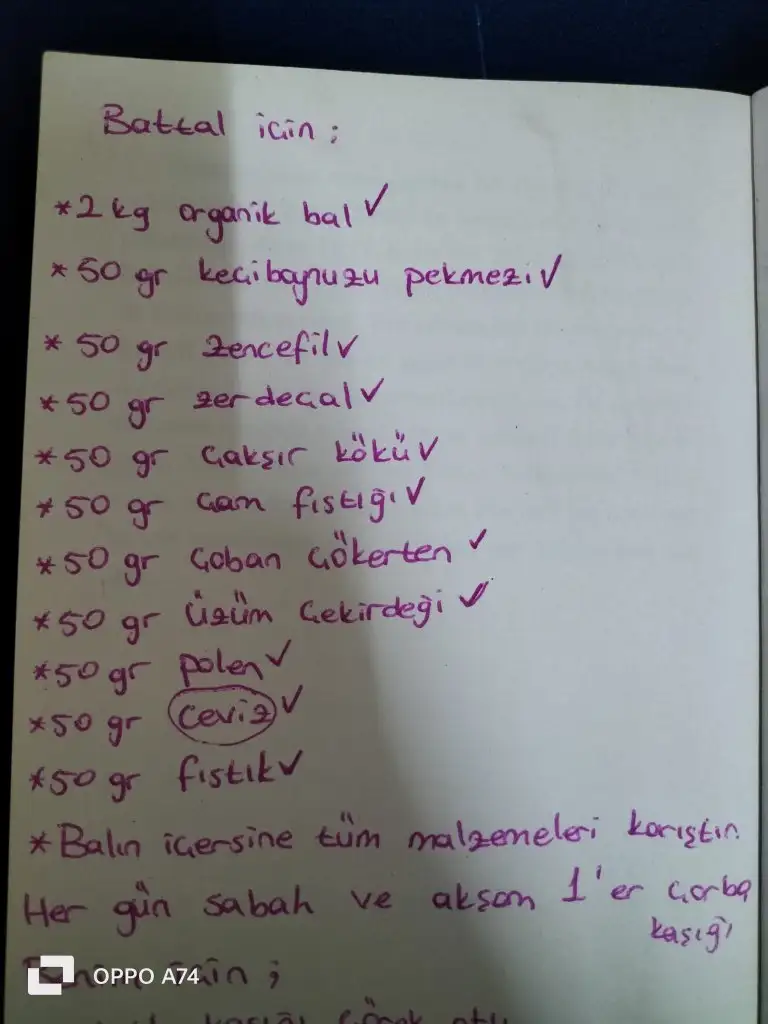 Battal için;
*2 kg organik bal ✓
*50 gr keçiboynuzu pekmezi ✓
*50 gr zencefil ✓
*50 gr zerdeçal ✓
*50 gr çakşır kökü ✓
*50 gr çam fıstığı ✓
*50 gr çoban çökerten ✓
*50 gr üzüm çekirdeği ✓
*50 gr polen ✓
*50 gr ceviz ✓
*50 gr fıstık ✓
*Balın içersine tüm malzemeleri karıştır.
Her gün sabah ve akşam 1'er çorba
kaşığı
için;
kaşığı çörek otu
OPPO A74